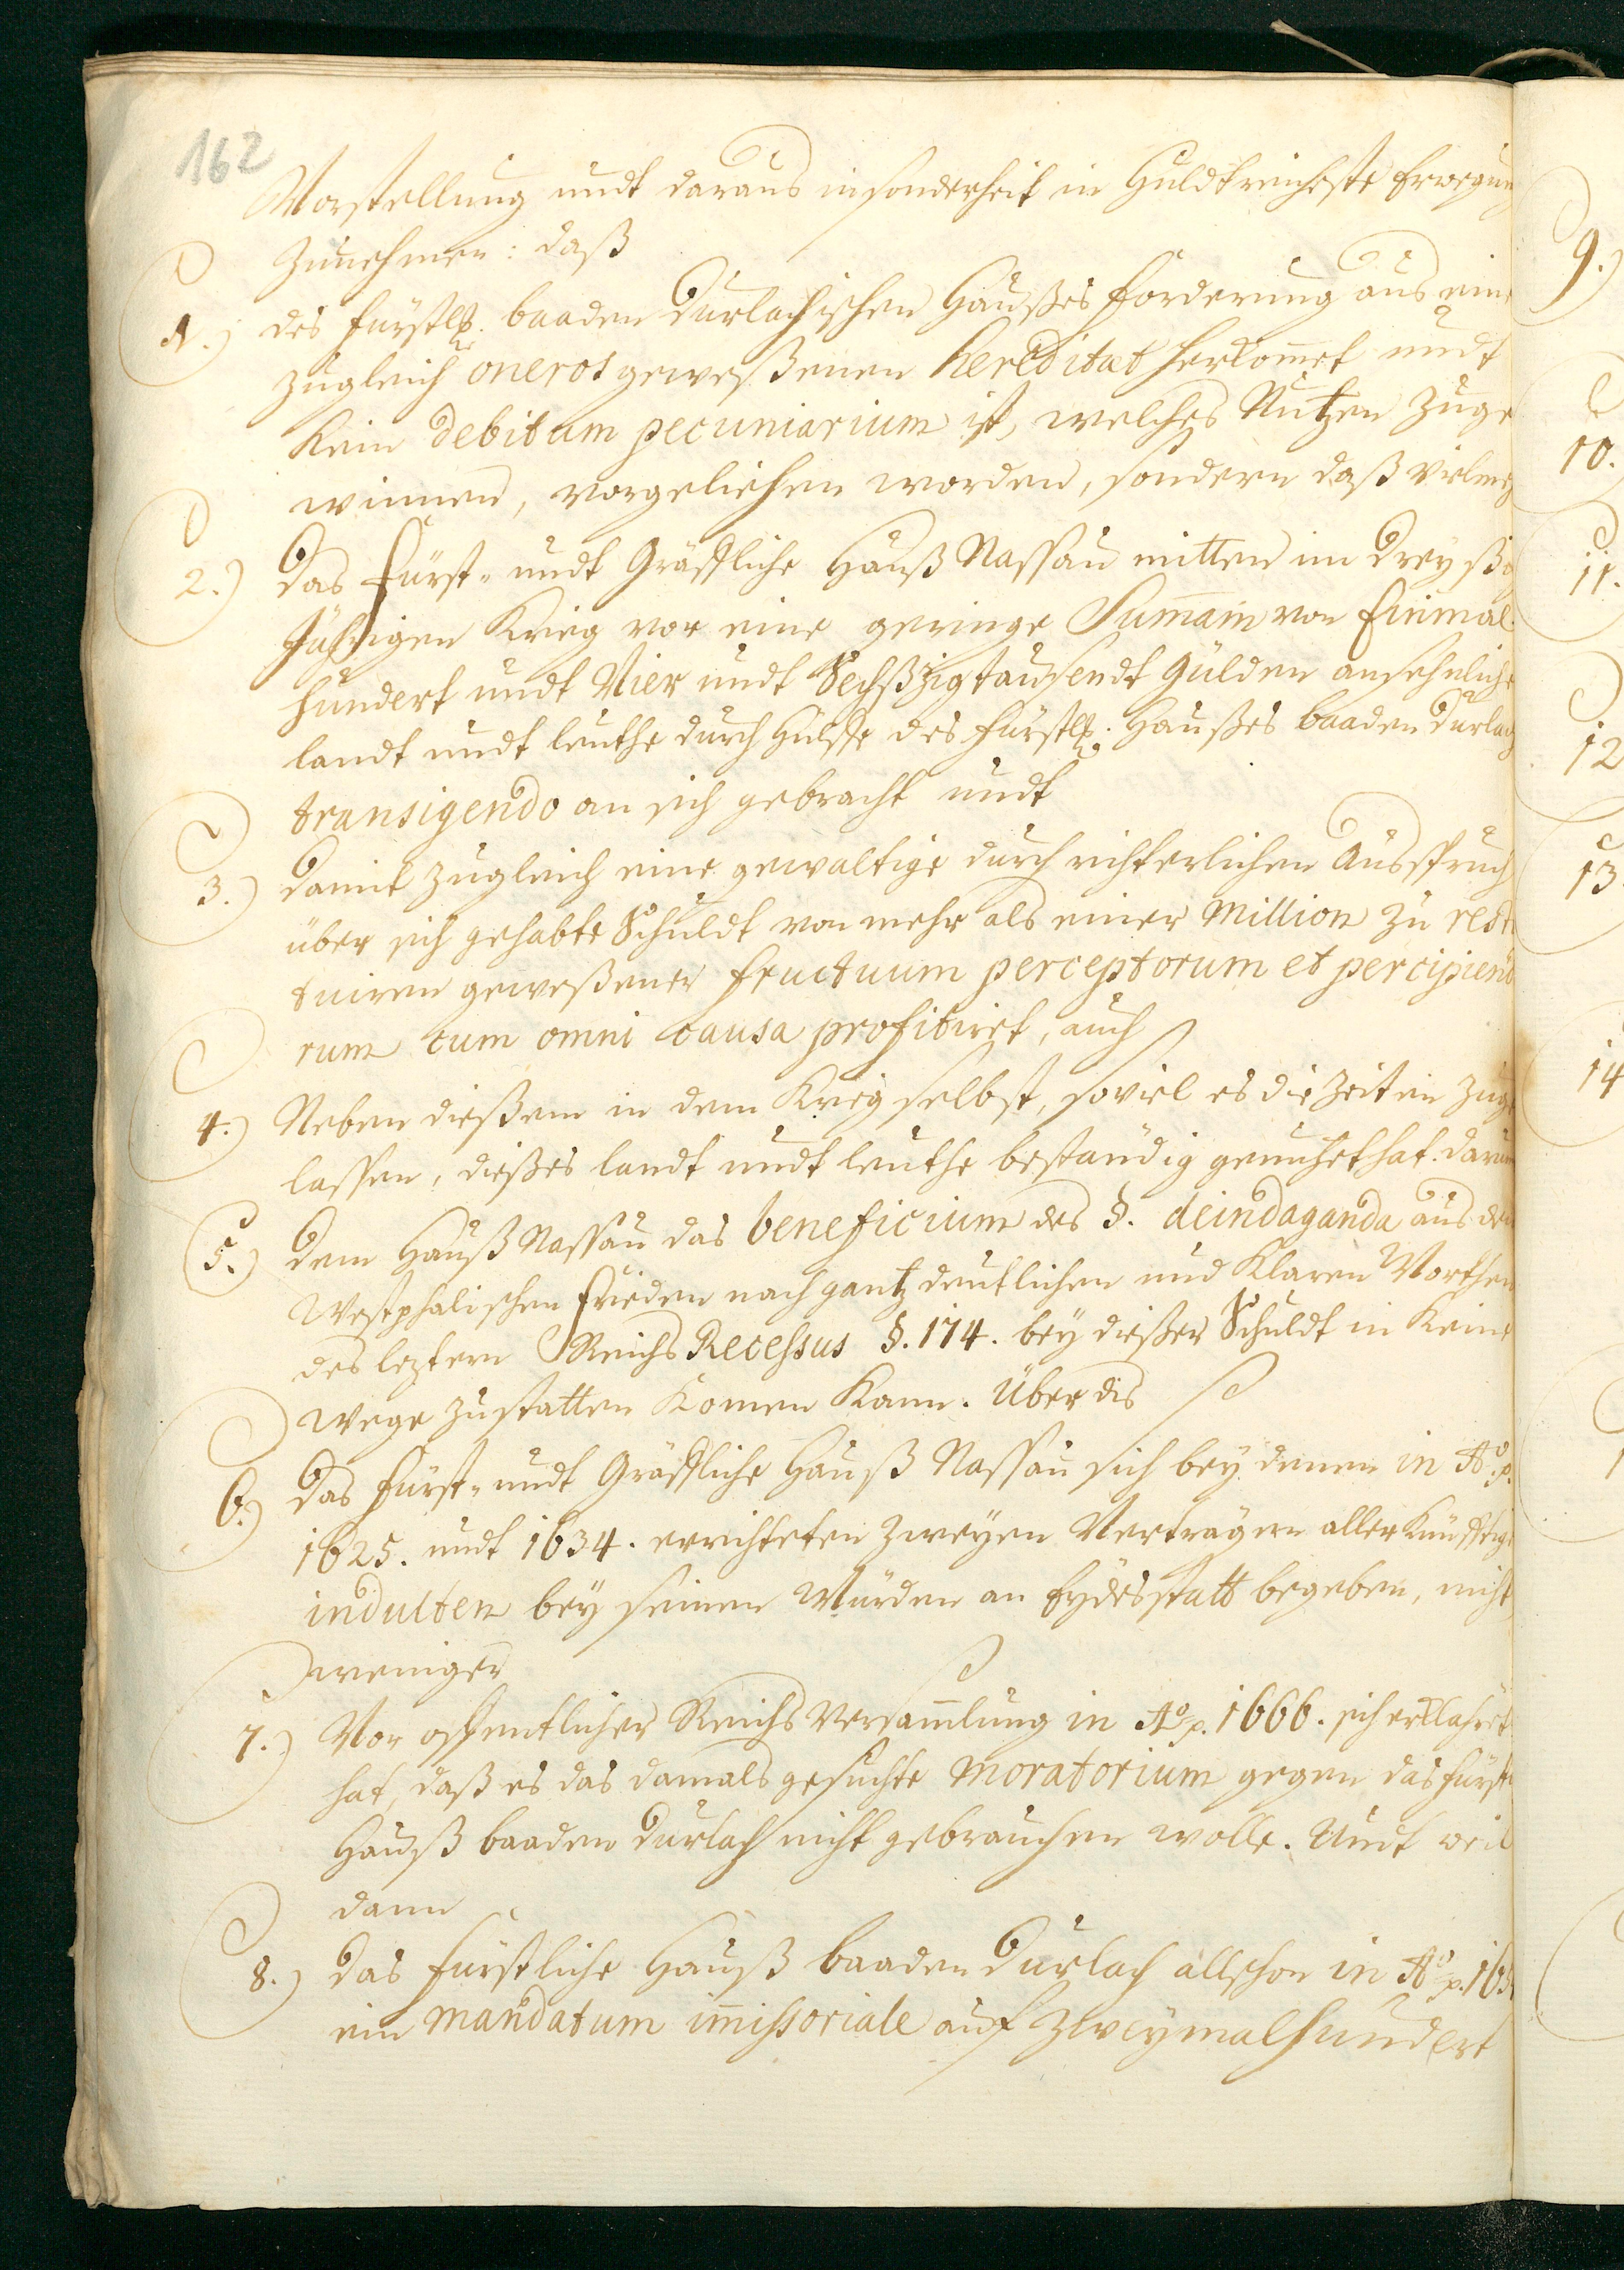 162
Vorstellung undt daraus insonderheit in Huldtreicheste Erwegung
Zunehmen: daß
1.) des fürstl. baaden Durlachischen Haußes forderung aus eine
zugleich oneros geweßenen hereditæt herkom̅et undt
Kein debitum pecuniarium ist, welches Nutzen zuge
winnen, vorgeliehen worden, sondern daß vielmeh
2.) Das Fürst- undt Gräffliche Hauß Nassau mitten im Dreyßig
Jährigen Krieg vor eine geringe Sum̅am von Einmal
hundert undt Vier undt Sechßzigtausendt Gulden ansehnliche
landt undt leuthe durch Hülffe des fürstl. Haußes baaden Durlach
transigendo an sich gebracht undt
3.) Damit zugleich eine gewaltige durch richterlichen Ausspruch
über sich gehabte Schuldt von mehr als einer Million zu resti
tuiren geweßener fructuum perceptorum et percipiendo
rum cum omni causa profitiret, auch
4.) Neben dießem in dem Krieg selbst, soviel es die Zeiten zuge
lassen, dießes landt undt leuthe beständig genutzet hat. darum
5.) Dem Hauß Nassau das beneficium des §. de indaganda aus dem
Westphalischen Frieden nach gantz deutlichen und Klaren Worthen
des leztern Reichs Recessus §. 174. bey dießer Schuldt in Keine
Wege zustatten Komen Kann. Über dis
6.) Das Fürst- undt Gräffliche Hauß Nassau sich bey denen in Aº. p.
1625. undt 1634. errichteten Zweyen Verträgen aller Künfftige
indulten bey seinen Würden an Eydesstatt begeben, nicht
weniger
7.) Vor offentlicher Reichs Versam̅lung in Aº. p. 1666. sich erklahret
hat, daß es das damals gesuchte Moratorium gegen das fürstl
Hauß baaden Durlach nicht gebrauchen wolle. Undt weil
dann
8.) Das fürstliche Hauß baaden Durlach allschon in Aº. p.
ein Mandatum im̅issoriale auf Zweymalhundert
9.)
10.
11.
12
13
14